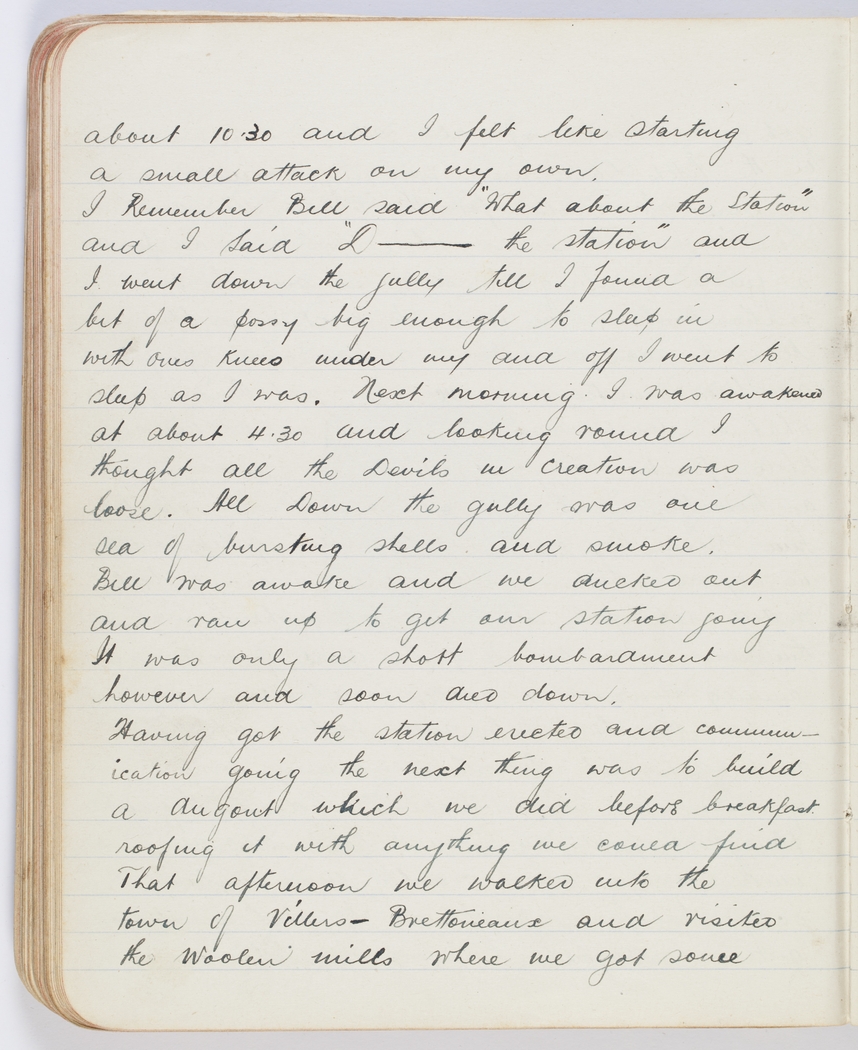 about 10.30 and I felt like starting
a small attack on my own.
I Remember Bill said "What about the Station"
and I Said "D—— the station" and
I went down the gully till I found a
bit of a possy big enough to sleep in
with ones knees under my and off I went to
sleep as I was. Next morning I was awakened
at about 4.30 and looking round I
thought all the Devils in Creation was
loose. All Down the gully was one
sea of bursting shells and smoke.
Bill was awake and we ducked out
and ran up to get our station going
It was only a short bombardment
however and soon died down.
Having got the station erected and commun-
ication going the next thing was to build
a dugout which we did before breakfast.
roofing it with anything we could find
That afternoon we walked into the
town of Villers-Brettoneaux and visited
the Woolen mills where we got some